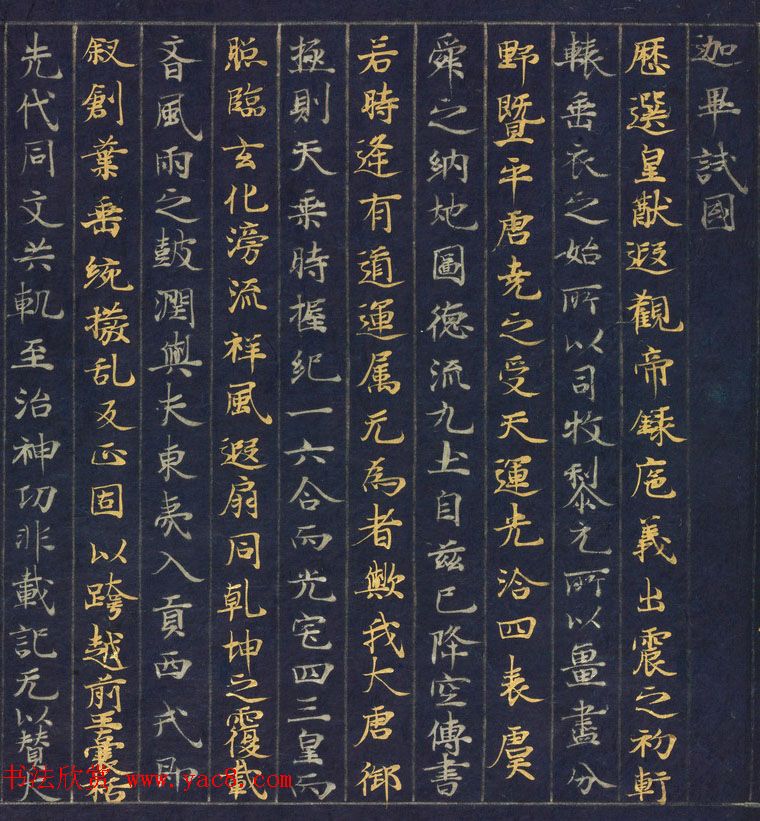 迦畢試國
歷選皇猷遐觀帝錄庖羲出震之初軒
轅垂衣之始所以司牧黎元所以畺畫分
野暨乎唐堯之受天運光洽四表虞
舜之納地圖德流九土自茲已降空傳書
若時逢有道運属无為者歟我大唐御
極則天乘時握紀一六合而光宅四三皇而
照臨玄化滂流祥風遐扇同乾坤之覆載
音風雨之鼓潤與夫東夷入貢西戎即
叙創業垂統撥乱反正固以跨越前王囊括
先代同文共軌至治神功非載記无以贊大
书法欣赏 www.yac8.com